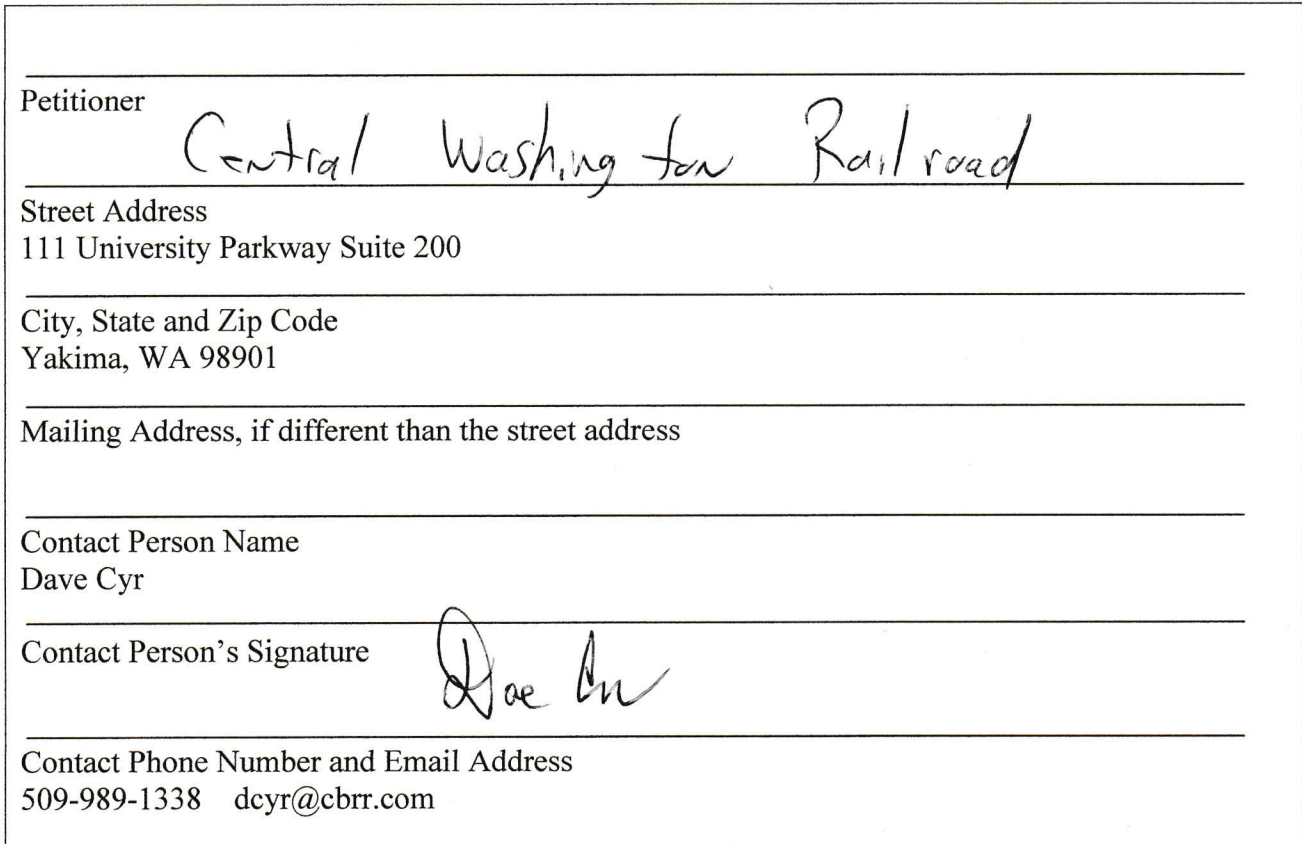 Petitioner
Central Washington Railroad
Street Address
111 University Parkway Suite 200
City, State and Zip Code
Yakima, WA 98901
Mailing Address, if different than the street address
Contact Person Name
Dave Cyr
Contact Person’s Signature
Contact Phone Number and Email Address
509-989-1338 dcyr@cbrr.com